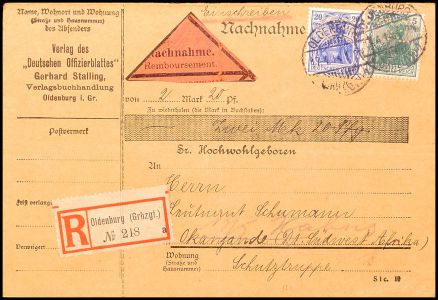 Name, Wohnort und Wohnung
(Straße und Hausnummer)
des Absenders
Verlag des
„Deutschen Offizierblattes"
Gerhard Stalling,
Verlagsbuchhandlung
Oldenburg i. Gr.
Postvermerk
Frist verlangt
Verweigert
Einschreiben
Nachnahme
Nachnahme.
Remboursement.
20
20
5
von 2 Mark 20 Pf.
Zu wiederholen (die Mark in Buchstaben):
Zwei Mk 20 Pfg.
Sr. Hochwohlgeboren
An
Herrn
Leutnant Schumann
Okangande (Dt. Südwest Afrika)
Wohnung
(Straße und
Hausnummer)
Schutztruppe
R
Oldenburg (Grhzgt.)
№ 218 a
Stc. 10